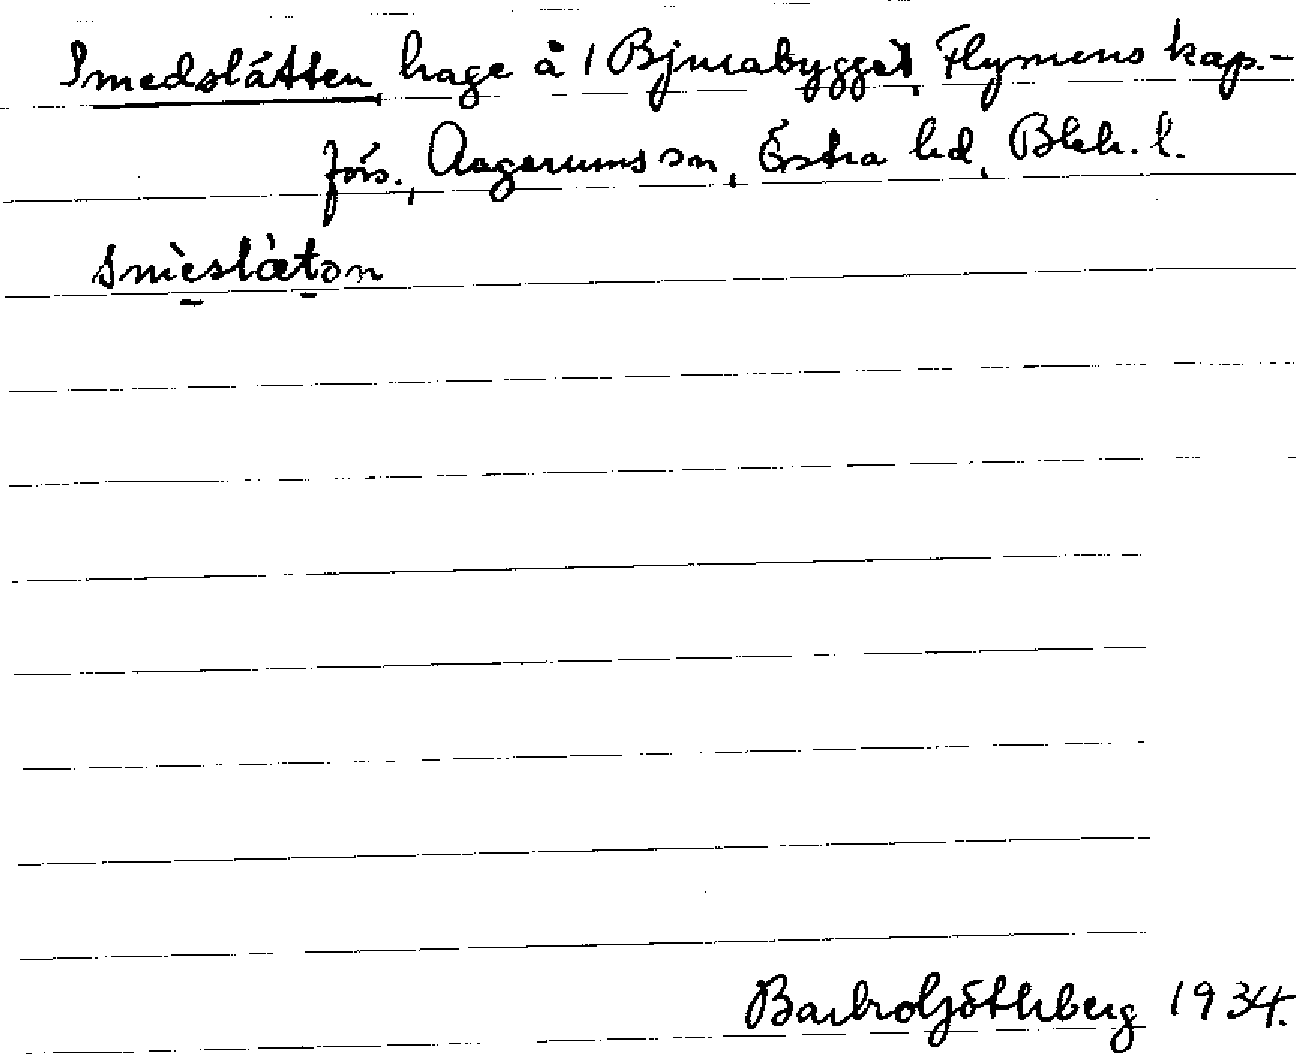 Smedslåtten, hage å 1 Bjurabygget, Flymens kap.-
förs., Augerums sn, Östra hd, Blek. l.
smìeslàtən
Barbro Göthberg 1934.